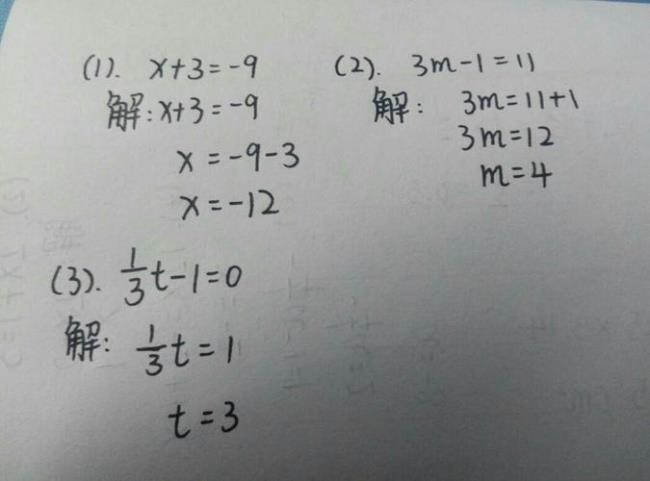 (1). x+3=-9
解:x+3=-9
x=-9-3
x=-12
(2). 3m-1=11
解: 3m=11+1
3m=12
m=4
(3). 1/3t-1=0
解: 1/3t=1
t=3